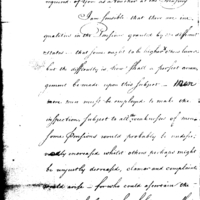 I am sensible that there are in-
qualities in the Pensions granted by the different
States - that some ought to be higher & some lower
but the difficulty is how shall a perfect arran
gement be made upon this subject -
men must be employed to make the
inspection, subject to all the weakness of men
some Pensions would probably be
increased whilst others perhaps might
be unjustly decreased, clamor and complaint
would arise - for who could ascertain the